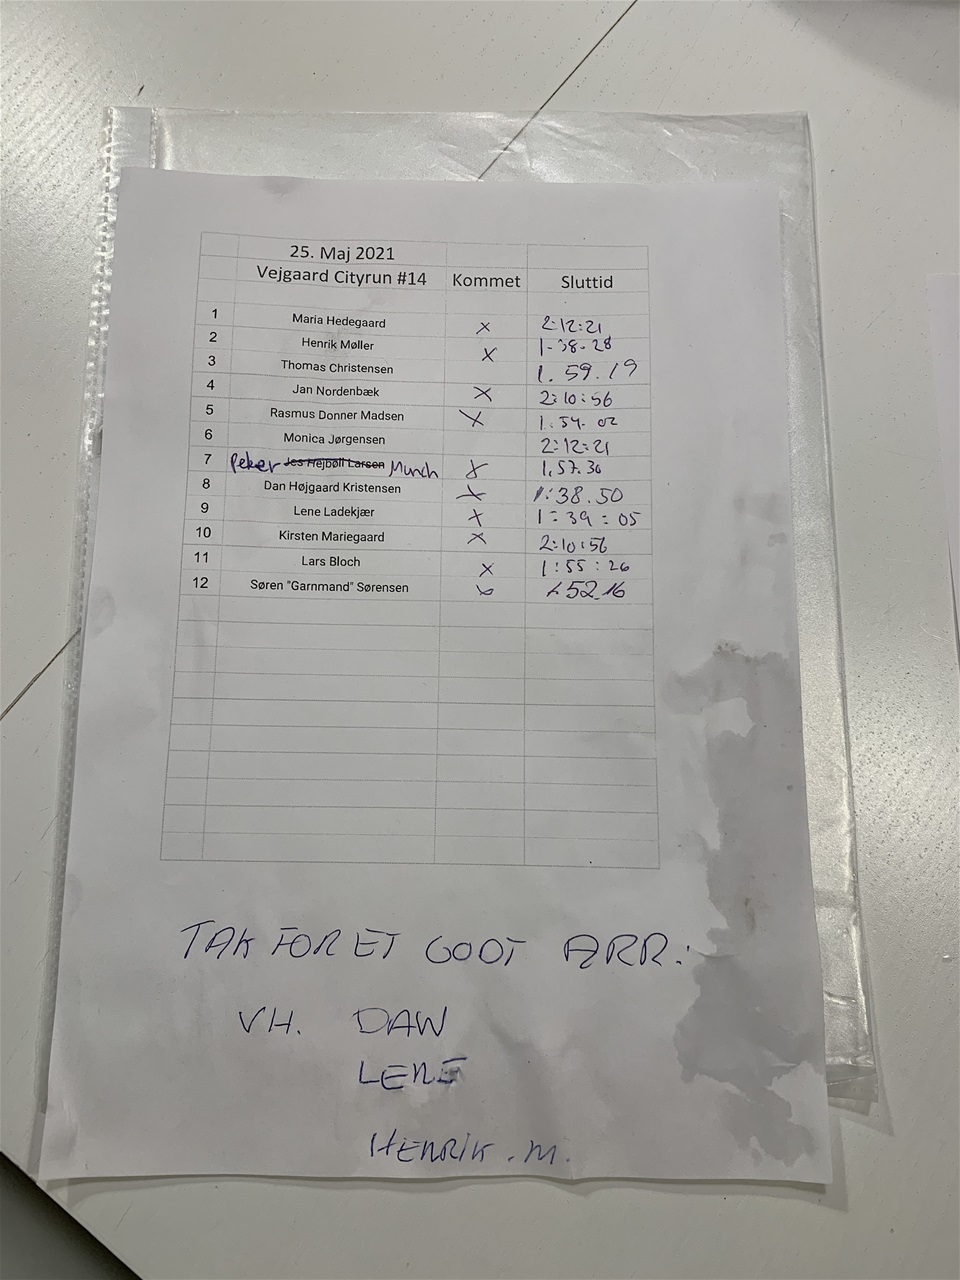 25. Maj 2021
Vejgaard Cityrun #14 Kommet Sluttid
1 Maria Hedegaard x 2:12:21
2 Henrik Møller x 1-38-28
3 Thomas Christensen 1. 59. 19
4 Jan Nordenbæk x 2:10:56
5 Rasmus Donner Madsen x 1:54. 02
6 Monica Jørgensen 2:12:21
7 Peker Jes Hejbøll Larsen Munch x 1.57.30
8 Dan Højgaard Kristensen x 1:38.50
9 Lene Ladekjær x 1:39:05
10 Kirsten Mariegaard x 2:10:56
11 Lars Bloch x 1:55:26
12 Søren "Garnmand" Sørensen x 1.52.16
TAK FOR ET GODT ARR.
VH. DAN
LENE
HENRIK. M.